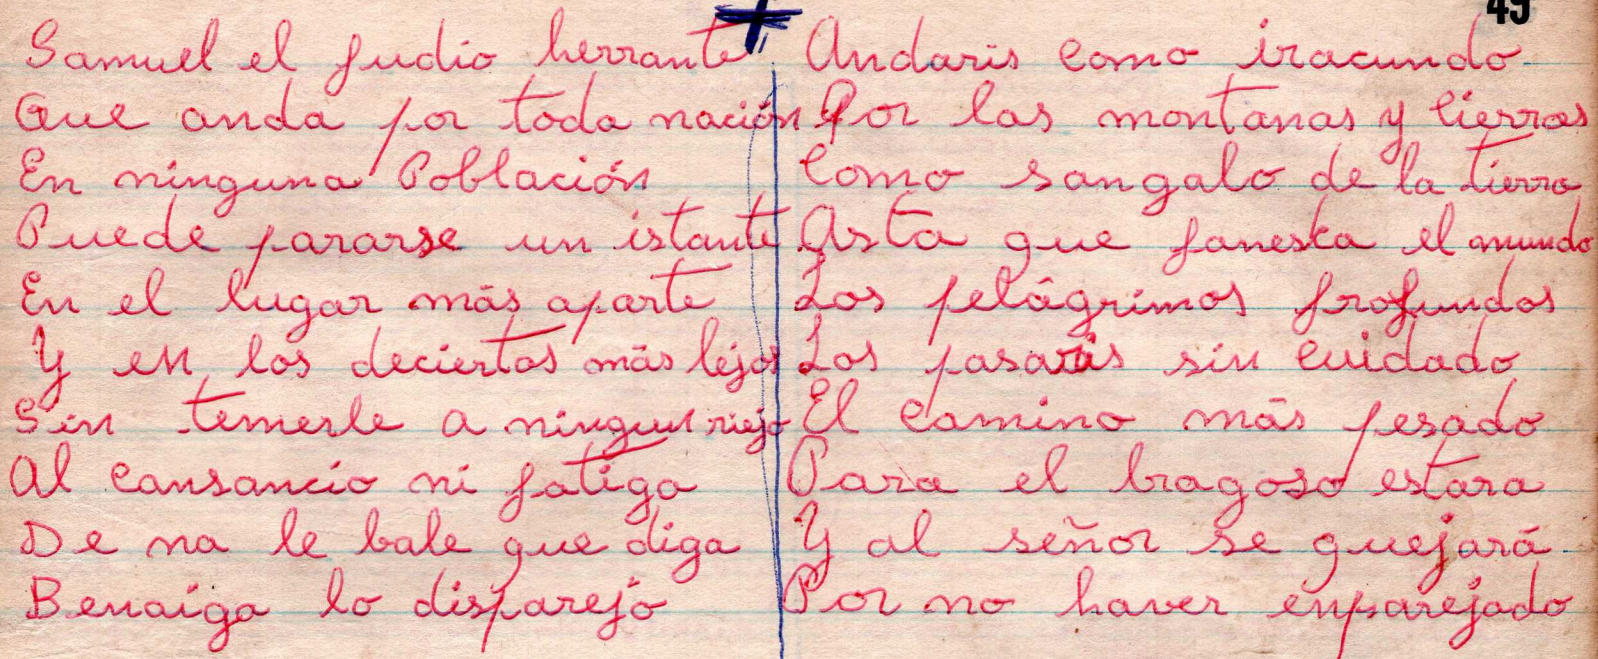 49
Samuel el judio herrante
Que anda por toda nación
En ninguna Población
Puede pararse un istante
En el lugar más aparte
Y en los deciertos más lejos
Sin temerle a ningun riejo
Al cansancio ni fatiga
De na le bale que diga
Benaiga lo disparejo
Andaris como iracundo
Por las montanas y tierras
Como sangalo de la tierra
Asta que faneska el mundo
Los pelágrimos frofundos
Los pasaris sin cuidado
El camino más pesado
Para el bragoso estara
Y al señor se quejará
Por no haver enparejado